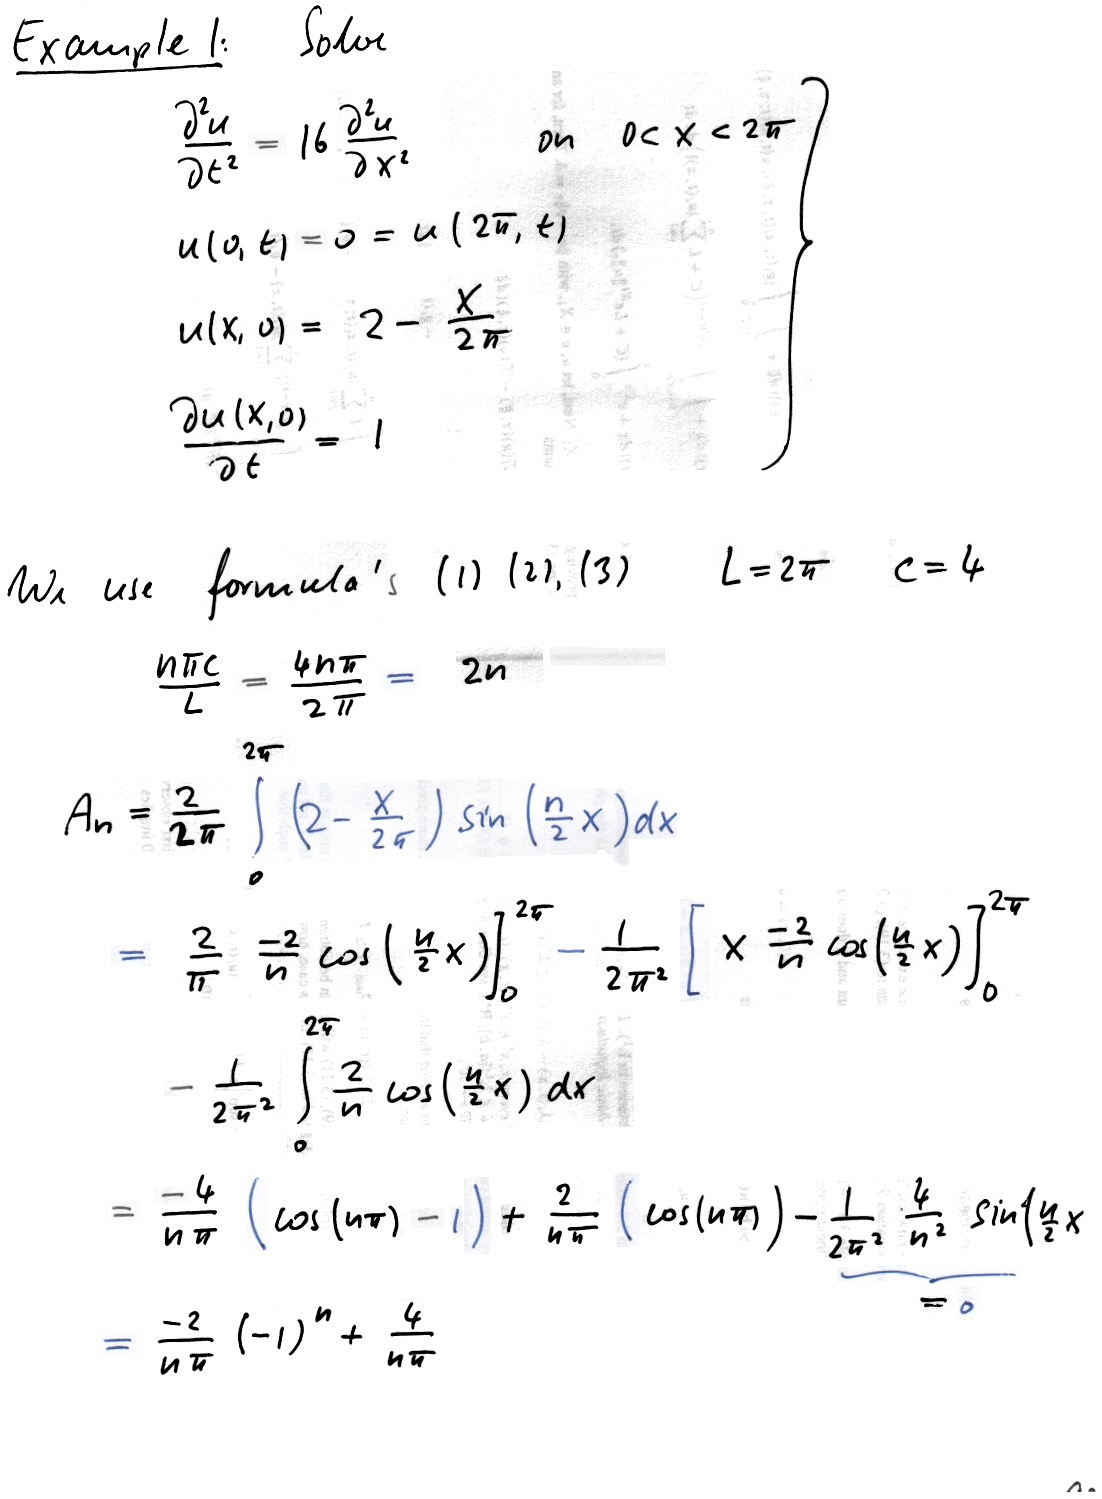 Example 1: Solve
∂²u/∂t² = 16 ∂²u/∂x² on 0 < x < 2π
u(0, t) = 0 = u(2π, t)
u(x, 0) = 2 − x/2π
∂u(x,0)/∂t = 1
We use formula's (1) (2), (3) L = 2π c = 4
nπc/L = 4nπ/2π = 2n
An = 2/2π ∫₀^2π (2 − x/2π) sin (n/2 x) dx
= 2/π −2/n cos (n/2 x)]₀^2π − 1/2π² [x −2/n cos(n/2 x)]₀^2π
− 1/2π² ∫₀^2π 2/n cos(n/2 x) dx
= −4/nπ (cos(nπ) − 1) + 2/nπ (cos(nπ)) − 1/2π² 4/n² sin(n/2 x
= 0
= −2/nπ (−1)ⁿ + 4/nπ